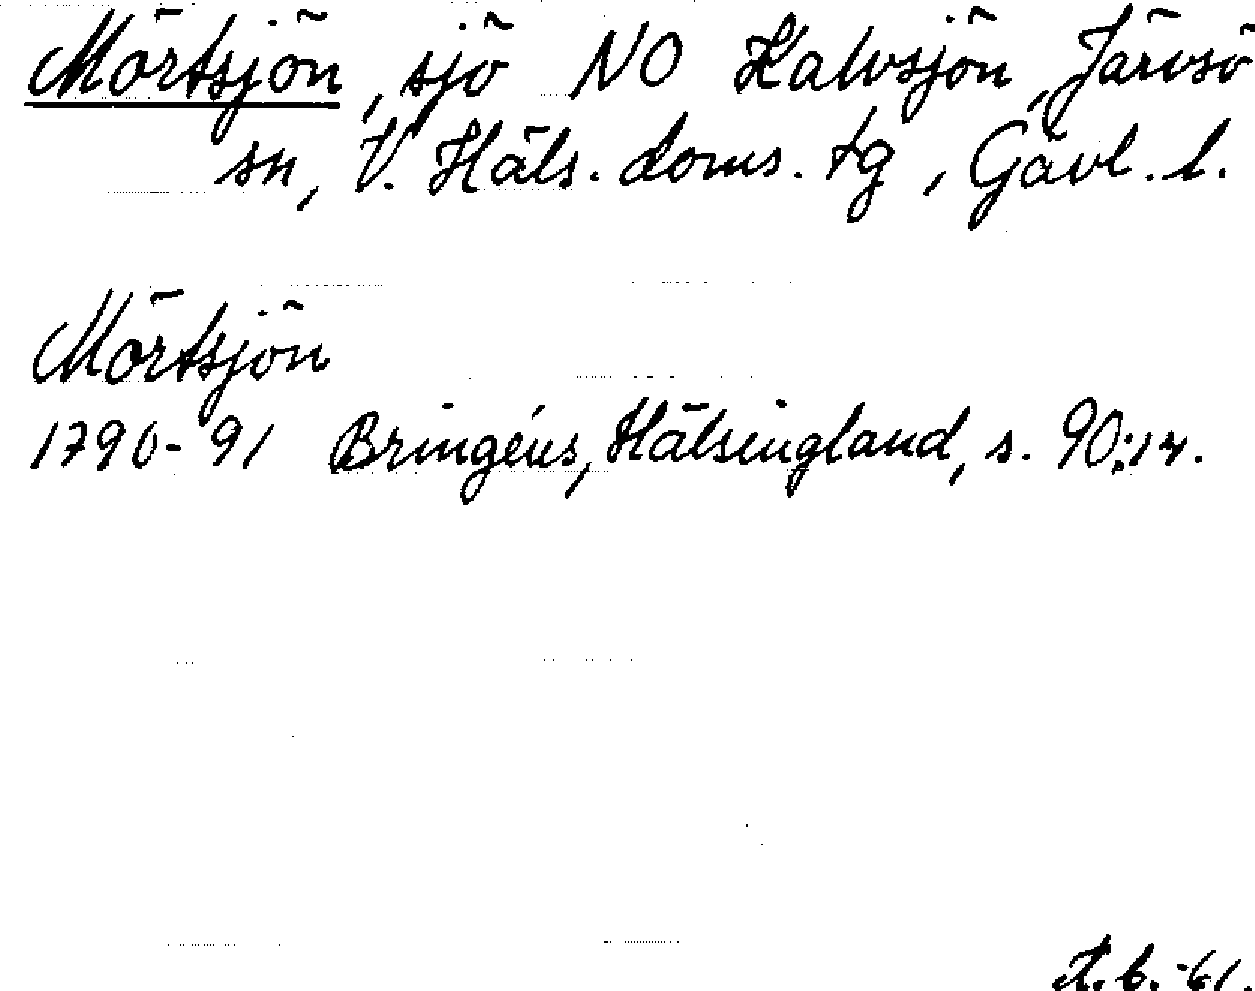 Mörtsjön, sjö NO Kalvsjön, Järvsö
sn, V. Häls. doms. tg, Gävl. l.
Mörtsjön
1790-91 Bringéus, Hälsingland, s. 90:14.
A.b. -61.